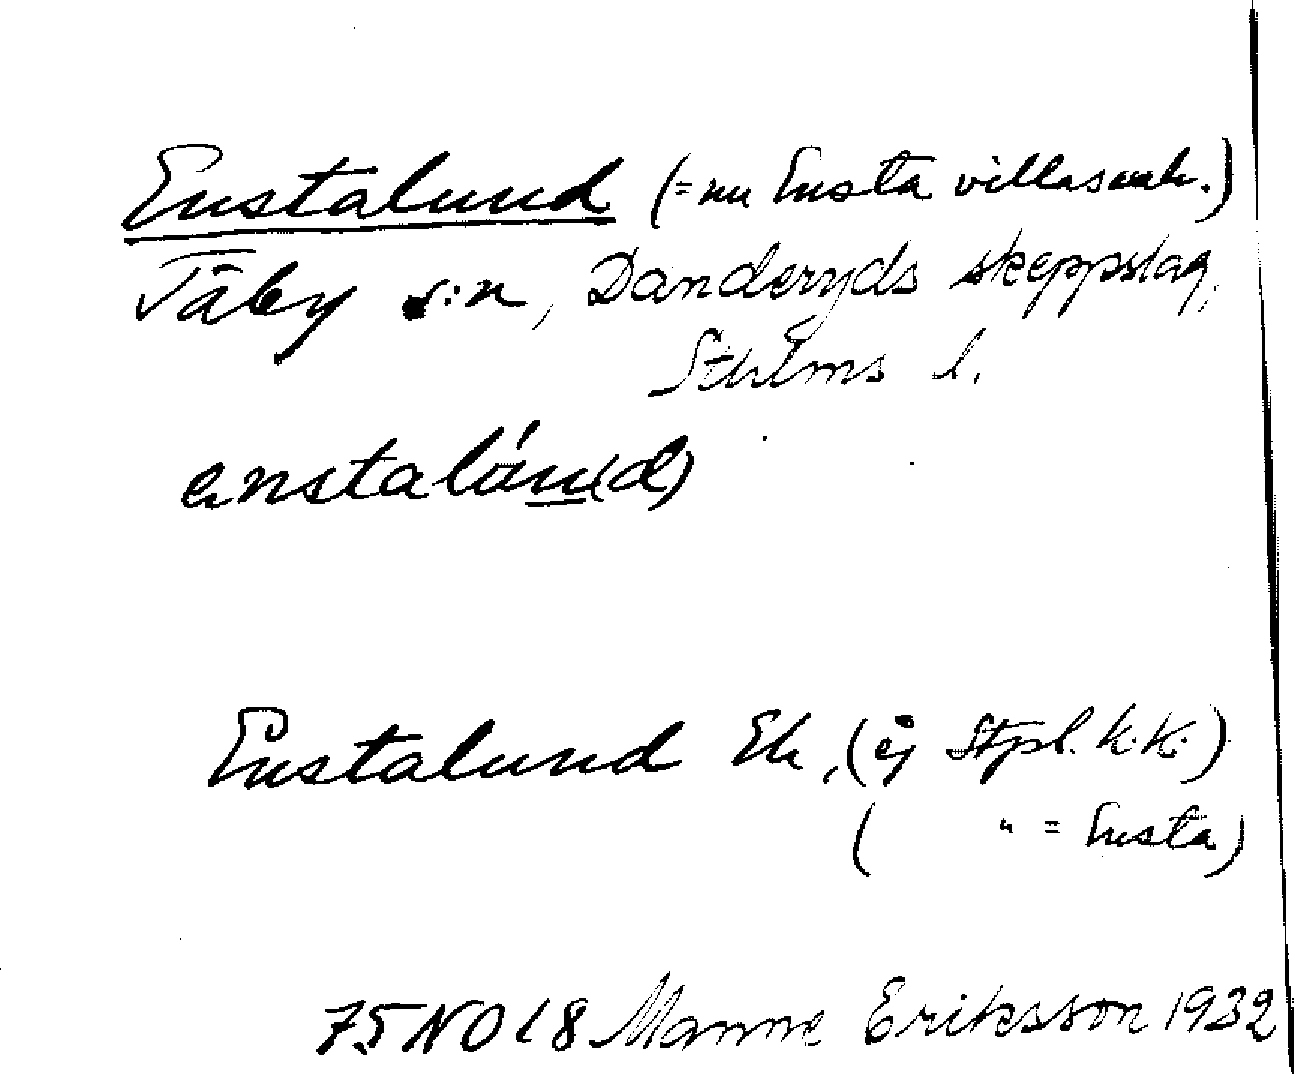 Enstalund (= nu Ensta villasamh.)
Täby s:n, Danderyds skeppslag,
Sthlms l.
enstalún(d)
Enstalund Ek, (ej Stpl. k.k.)
( " = Ensta)
75 NO l 8 Manne Eriksson 1932